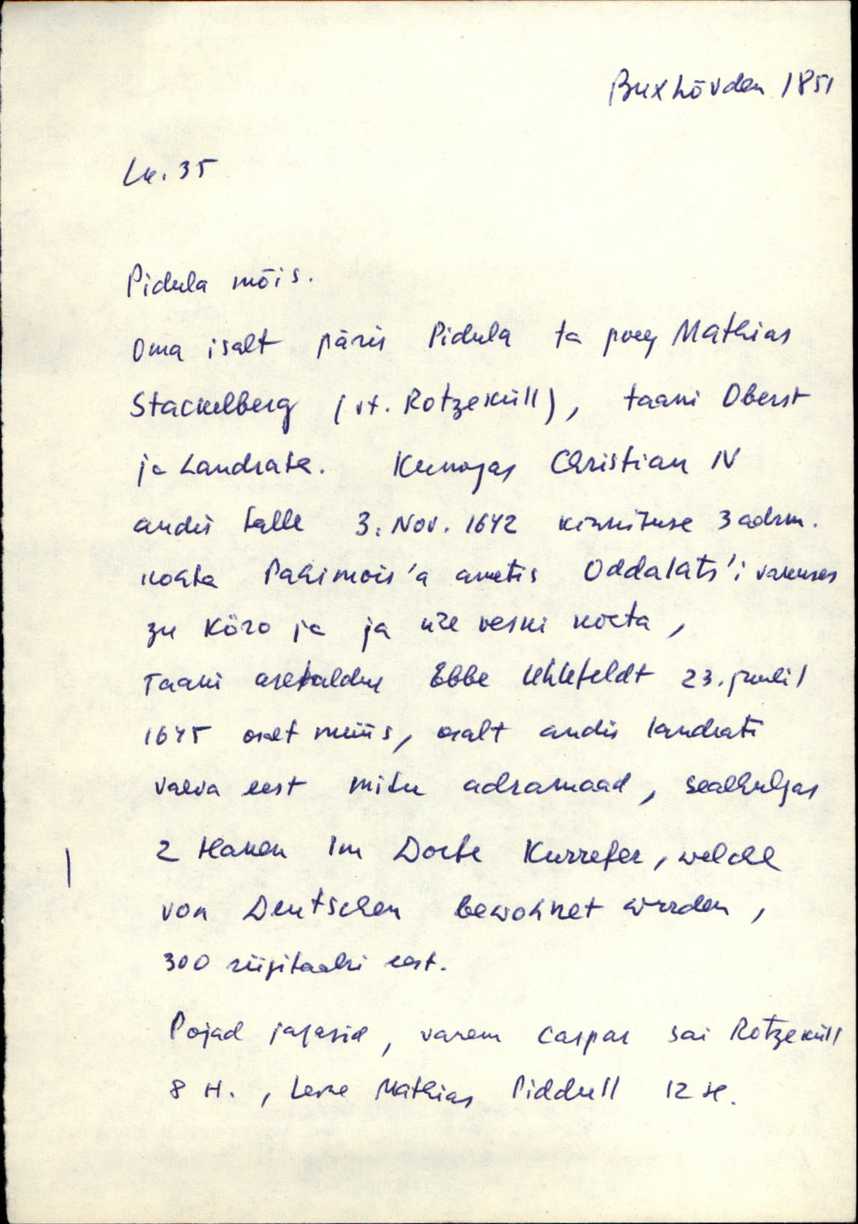 Buxhövden 1851
Lk. 35
Pidula mõis.
Oma isalt päris Pidula ta poeg Mathias
Stackelberg (vt. Rotzeküll), taani Oberst
ja Landrata. Kuningas Christian IV
andis talle 3. Nov. 1642 kinnituse 3 adrm.
kohta Pahimois'a ametis Oddalats'i vakuses
zu Köro ja ja ühe veski kohta,
Taani asehaldur Ebbe Uhlefeldt 23. juulil
1645 osalt müüs, osalt andis landrati
vaeva eest mitu adramaad, sealhulgas
2 Haken im Dorfe Kurrefer, welche
von Deutschen bewohnet wurden,
300 riigitaalri eest.
Pojad jagasid, vanem Caspar sai Rotzeküll
8 H., teine Mathias Piddull 12 H.